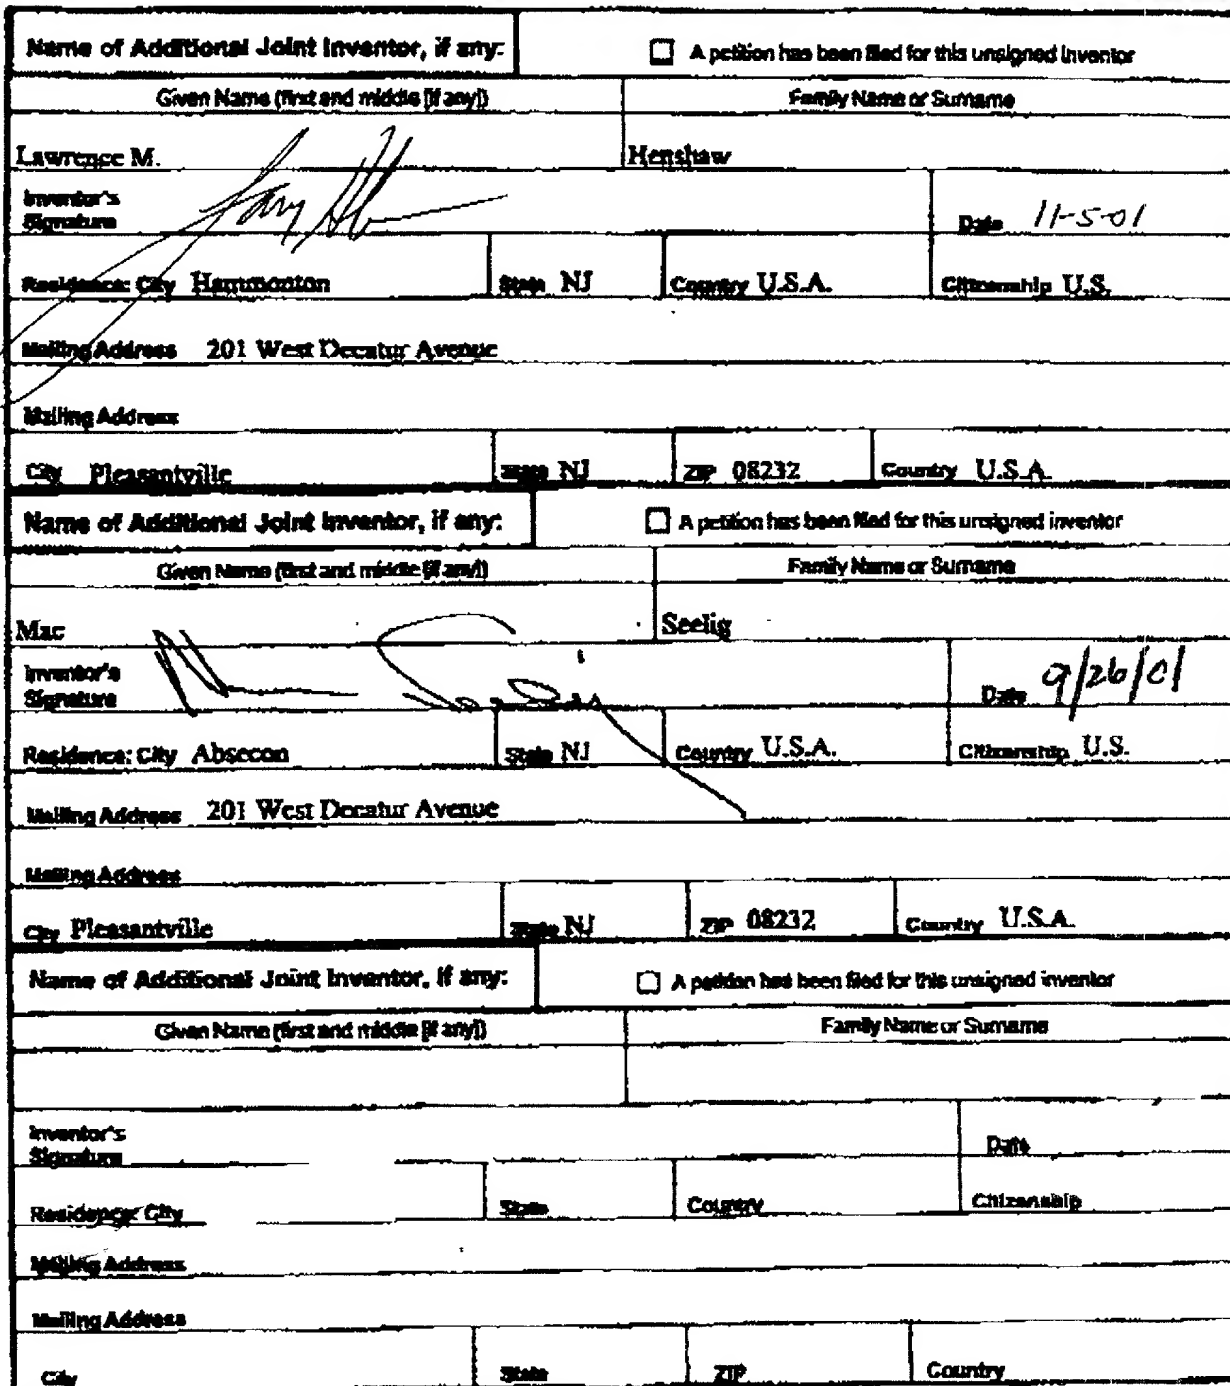 Name of Additional Joint Inventor, if any: A petition has been filed for this unsigned inventor
Given Name (first and middle [if any]) Family Name or Surname
Lawrence M. Henshaw
Inventor's
Signature Date 11-5-01
Residence: City Hammonton State NJ Country U.S.A. Citizenship U.S.
Mailing Address 201 West Decatur Avenue
Mailing Address
City Pleasantville State NJ ZIP 08232 Country U.S.A.
Name of Additional Joint Inventor, if any: A petition has been filed for this unsigned inventor
Given Name (first and middle [if any]) Family Name or Surname
Mac Seelig
Inventor's
Signature Date 9/26/01
Residence: City Absecon State NJ Country U.S.A. Citizenship U.S.
Mailing Address 201 West Decatur Avenue
Mailing Address
City Pleasantville State NJ ZIP 08232 Country U.S.A.
Name of Additional Joint Inventor, if any: A petition has been filed for this unsigned inventor
Given Name (first and middle [if any]) Family Name or Surname
Inventor's
Signature Date
Residence: City State Country Citizenship
Mailing Address
Mailing Address
City State ZIP Country